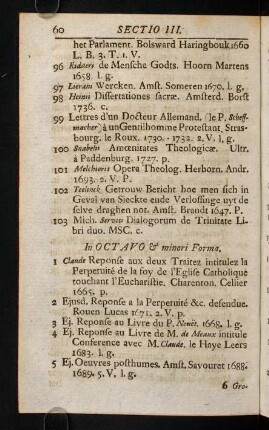 60 SECTIO III.
het Parlament. Bolsward Haringbouk 1660
L. B. 3. T. 1. V.
96 Ridders de Mensche Godts. Hoorn Martens
1658. l. g.
97 Lierans Wercken. Amst. Someren 1670. l. g.
98 Heinii Dissertationes sacræ. Amsterd. Borst
1736. c.
99 Lettres d'un Docteur Allemand, (le P. Scheff-
macher) à un Gentilhomme Protestant, Stras-
bourg. le Roux. 1730. - 1732. 2. V. l. g.
100 Snabelii Amœnitates Theologicæ. Ultr.
à Paddenburg. 1727. p.
101 Melchioris Opera Theolog. Herborn. Andr.
1693. 2. V. P.
102 Teelinck Getrouw Bericht hoe men sich in
Geval van Sieckte ende Verlossinge uyt de
selve draghen not. Amst. Brandt 1647. P.
103 Mich. Serveto Dialogorum de Trinitate Li-
bri duo. MSC. c.
In OCTAVO & minori Forma.
1 Claude Reponse aux deux Traitez intitulez la
Perpetuité de la foy de l'Eglise Catholique
touchant l'Eucharistie. Charenton. Cellier
1665. p.
2 Ejusd. Reponse a la Perpetuité &c. defendue.
Rouen Lucas 1671. 2. V. p.
3 Ej. Reponse au Livre du P. Nouët. 1668. l. g.
4 Ej. Reponse au Livre de M. de Meaux intitule
Conference avec M. Claude. le Haye Leers
1683. l. g.
5 Ej. Oeuvres posthumes. Amst. Savouret 1688.
1689. 5. V. l. g.
6 Gro-